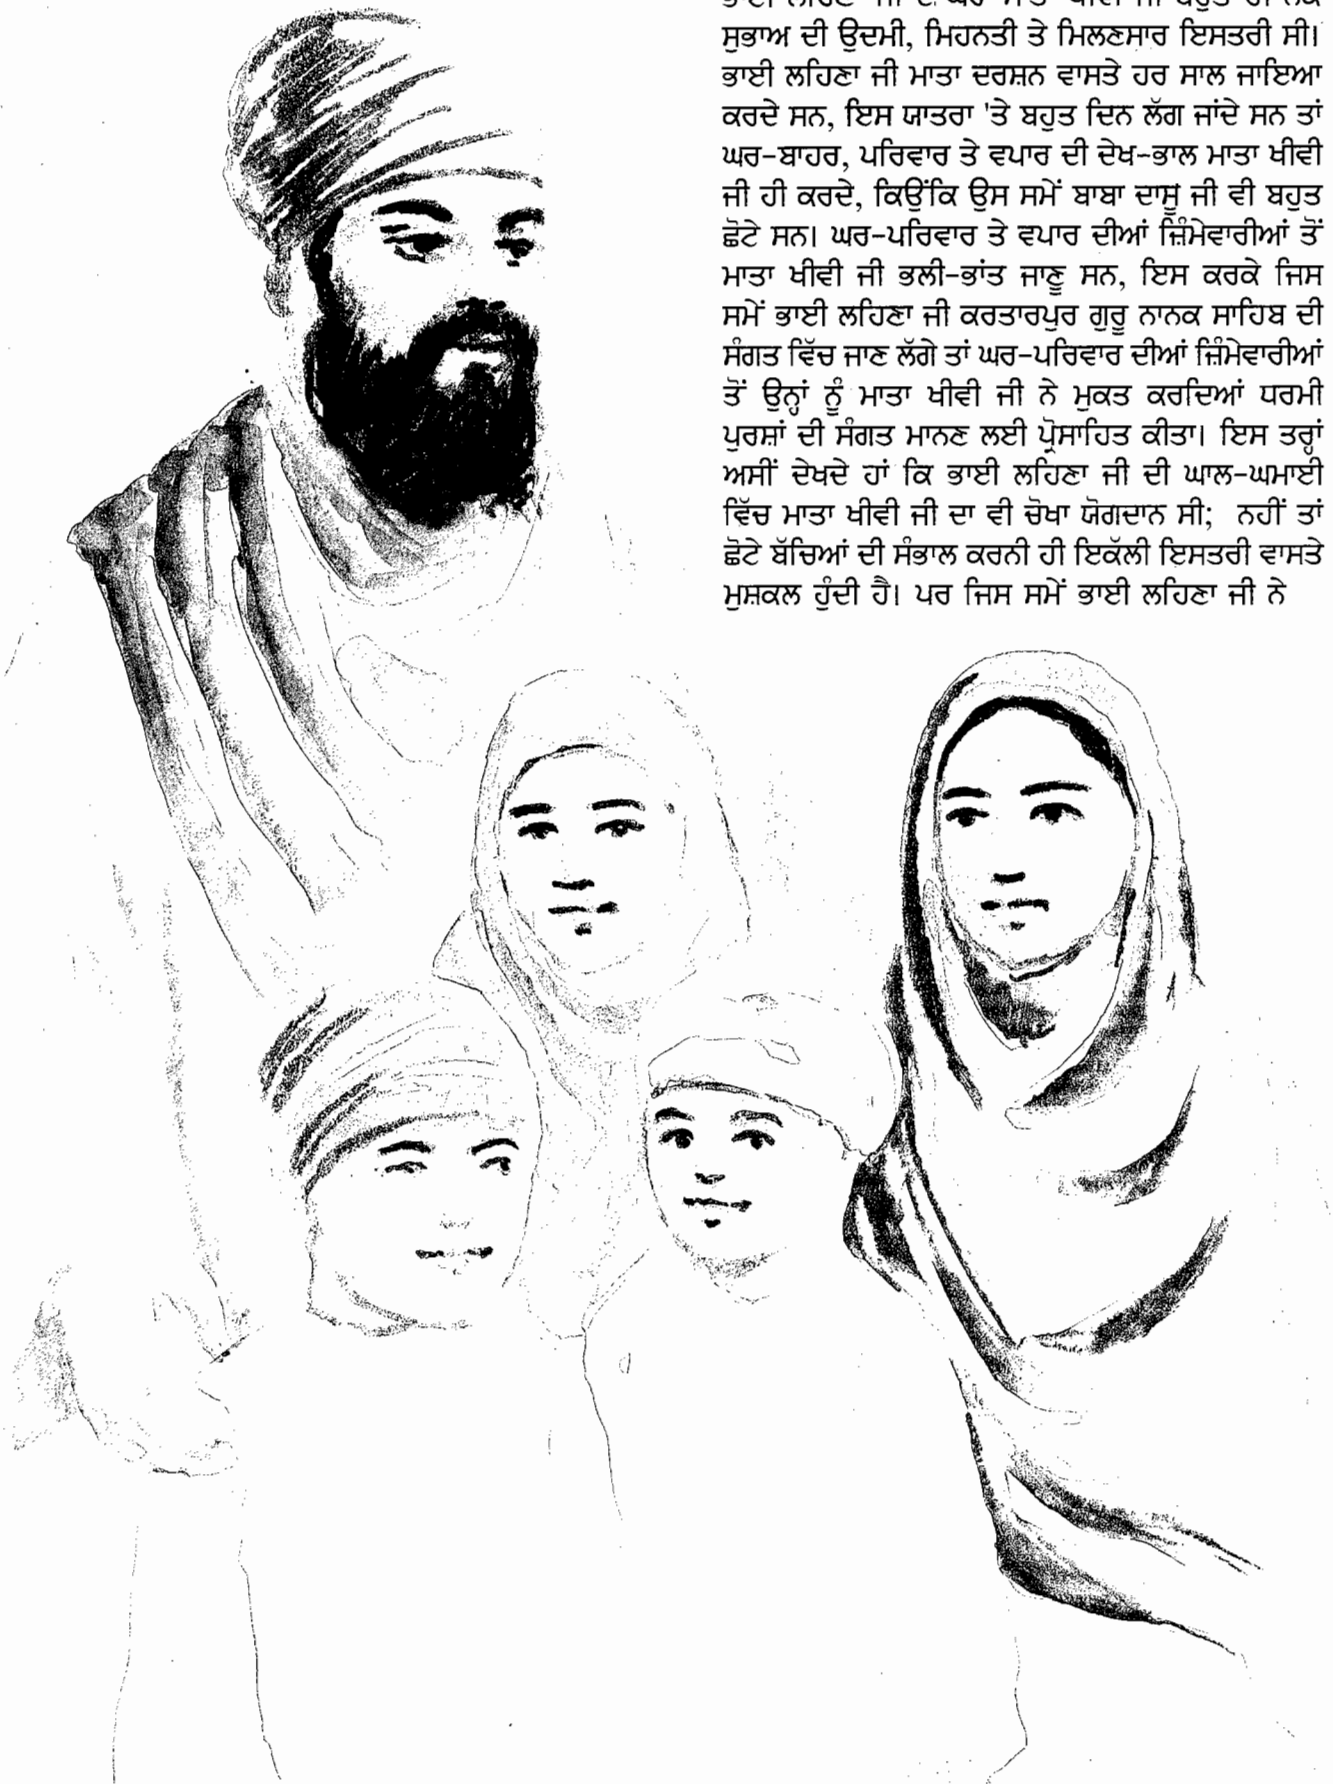 ਸੁਭਾਅ ਦੀ ਉਦਮੀ, ਮਿਹਨਤੀ ਤੇ ਮਿਲਣਸਾਰ ਇਸਤਰੀ ਸੀ।
ਭਾਈ ਲਹਿਣਾ ਜੀ ਮਾਤਾ ਦਰਸ਼ਨ ਵਾਸਤੇ ਹਰ ਸਾਲ ਜਾਇਆ
ਕਰਦੇ ਸਨ, ਇਸ ਯਾਤਰਾ 'ਤੇ ਬਹੁਤ ਦਿਨ ਲੱਗ ਜਾਂਦੇ ਸਨ ਤਾਂ
ਘਰ-ਬਾਹਰ, ਪਰਿਵਾਰ ਤੇ ਵਪਾਰ ਦੀ ਦੇਖ-ਭਾਲ ਮਾਤਾ ਖੀਵੀ
ਜੀ ਹੀ ਕਰਦੇ, ਕਿਉਂਕਿ ਉਸ ਸਮੇਂ ਬਾਬਾ ਦਾਸੂ ਜੀ ਵੀ ਬਹੁਤ
ਛੋਟੇ ਸਨ। ਘਰ-ਪਰਿਵਾਰ ਤੇ ਵਪਾਰ ਦੀਆਂ ਜ਼ਿੰਮੇਵਾਰੀਆਂ ਤੋਂ
ਮਾਤਾ ਖੀਵੀ ਜੀ ਭਲੀ-ਭਾਂਤ ਜਾਣੂ ਸਨ, ਇਸ ਕਰਕੇ ਜਿਸ
ਸਮੇਂ ਭਾਈ ਲਹਿਣਾ ਜੀ ਕਰਤਾਰਪੁਰ ਗੁਰੂ ਨਾਨਕ ਸਾਹਿਬ ਦੀ
ਸੰਗਤ ਵਿੱਚ ਜਾਣ ਲੱਗੇ ਤਾਂ ਘਰ-ਪਰਿਵਾਰ ਦੀਆਂ ਜ਼ਿੰਮੇਵਾਰੀਆਂ
ਤੋਂ ਉਨ੍ਹਾਂ ਨੂੰ ਮਾਤਾ ਖੀਵੀ ਜੀ ਨੇ ਮੁਕਤ ਕਰਦਿਆਂ ਧਰਮੀ
ਪੁਰਸ਼ਾਂ ਦੀ ਸੰਗਤ ਮਾਨਣ ਲਈ ਪ੍ਰੋਸਾਹਿਤ ਕੀਤਾ। ਇਸ ਤਰ੍ਹਾਂ
ਅਸੀਂ ਦੇਖਦੇ ਹਾਂ ਕਿ ਭਾਈ ਲਹਿਣਾ ਜੀ ਦੀ ਘਾਲ-ਘਮਾਈ
ਵਿੱਚ ਮਾਤਾ ਖੀਵੀ ਜੀ ਦਾ ਵੀ ਚੋਖਾ ਯੋਗਦਾਨ ਸੀ; ਨਹੀਂ ਤਾਂ
ਛੋਟੇ ਬੱਚਿਆਂ ਦੀ ਸੰਭਾਲ ਕਰਨੀ ਹੀ ਇਕੱਲੀ ਇਸਤਰੀ ਵਾਸਤੇ
ਮੁਸ਼ਕਲ ਹੁੰਦੀ ਹੈ। ਪਰ ਜਿਸ ਸਮੇਂ ਭਾਈ ਲਹਿਣਾ ਜੀ ਨੇ